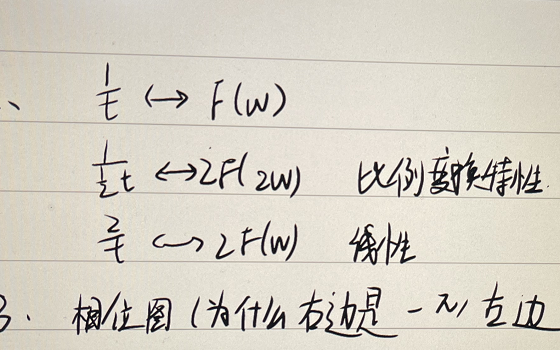 、 1/t ↔ F(w)
1/(½t) ↔ 2F(2w) 比例变换特性.
2/t ↔ 2F(w) 线性
3. 相位图(为什么右边是 -π,左边